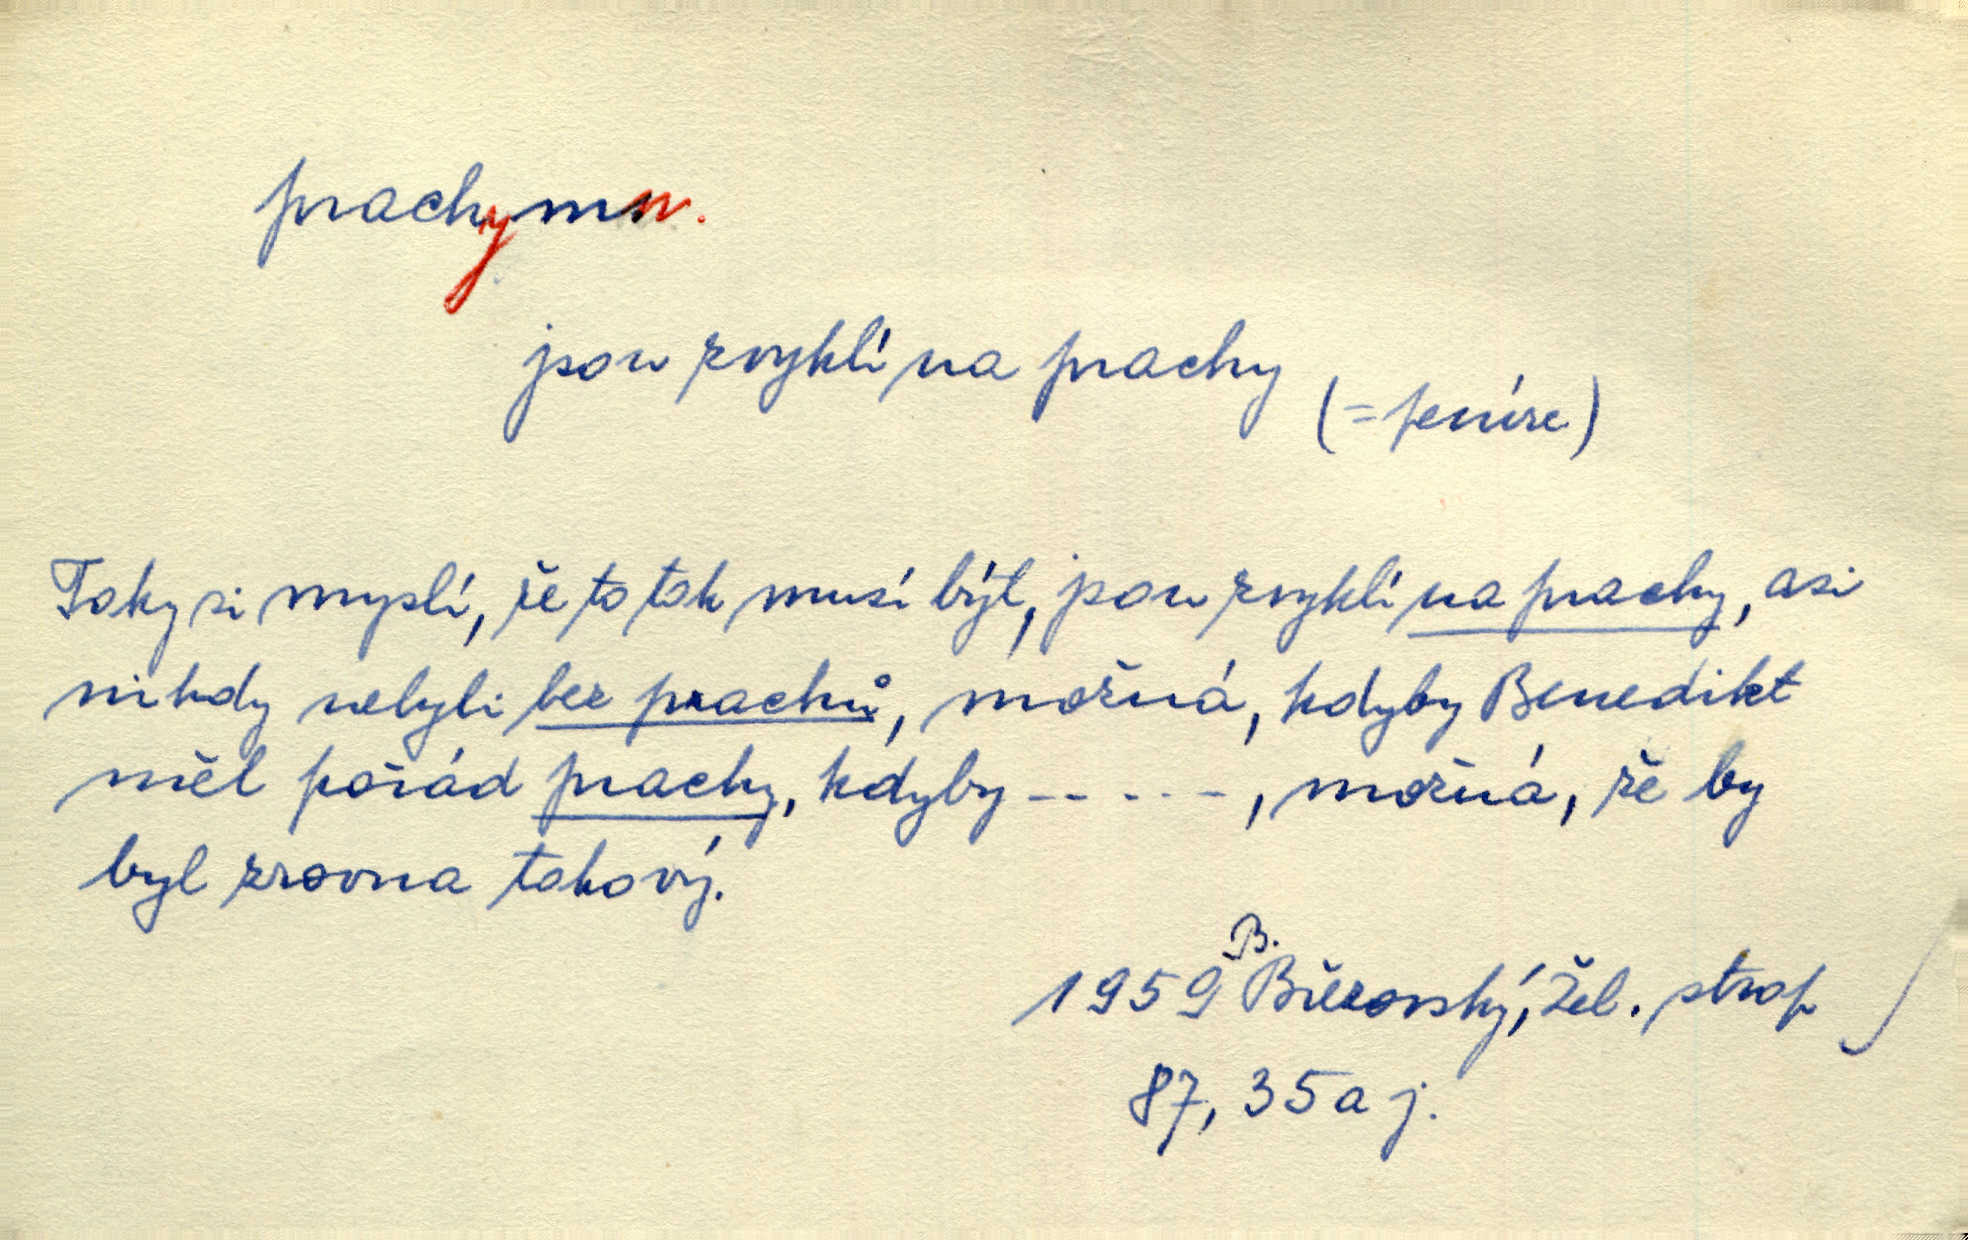 prachy mn.
jsou zvyklí na prachy
(= peníze)
Taky si myslí, že to tak musí být, jsou zvyklí na prachy, asi
nikdy nebyli bez prachů, možná, kdyby Benedikt
měl pořád prachy, kdyby - - - - -, možná, že by
byl zrovna takový.
B.
1959 Březovský, Žel. strop
87, 35 a j.